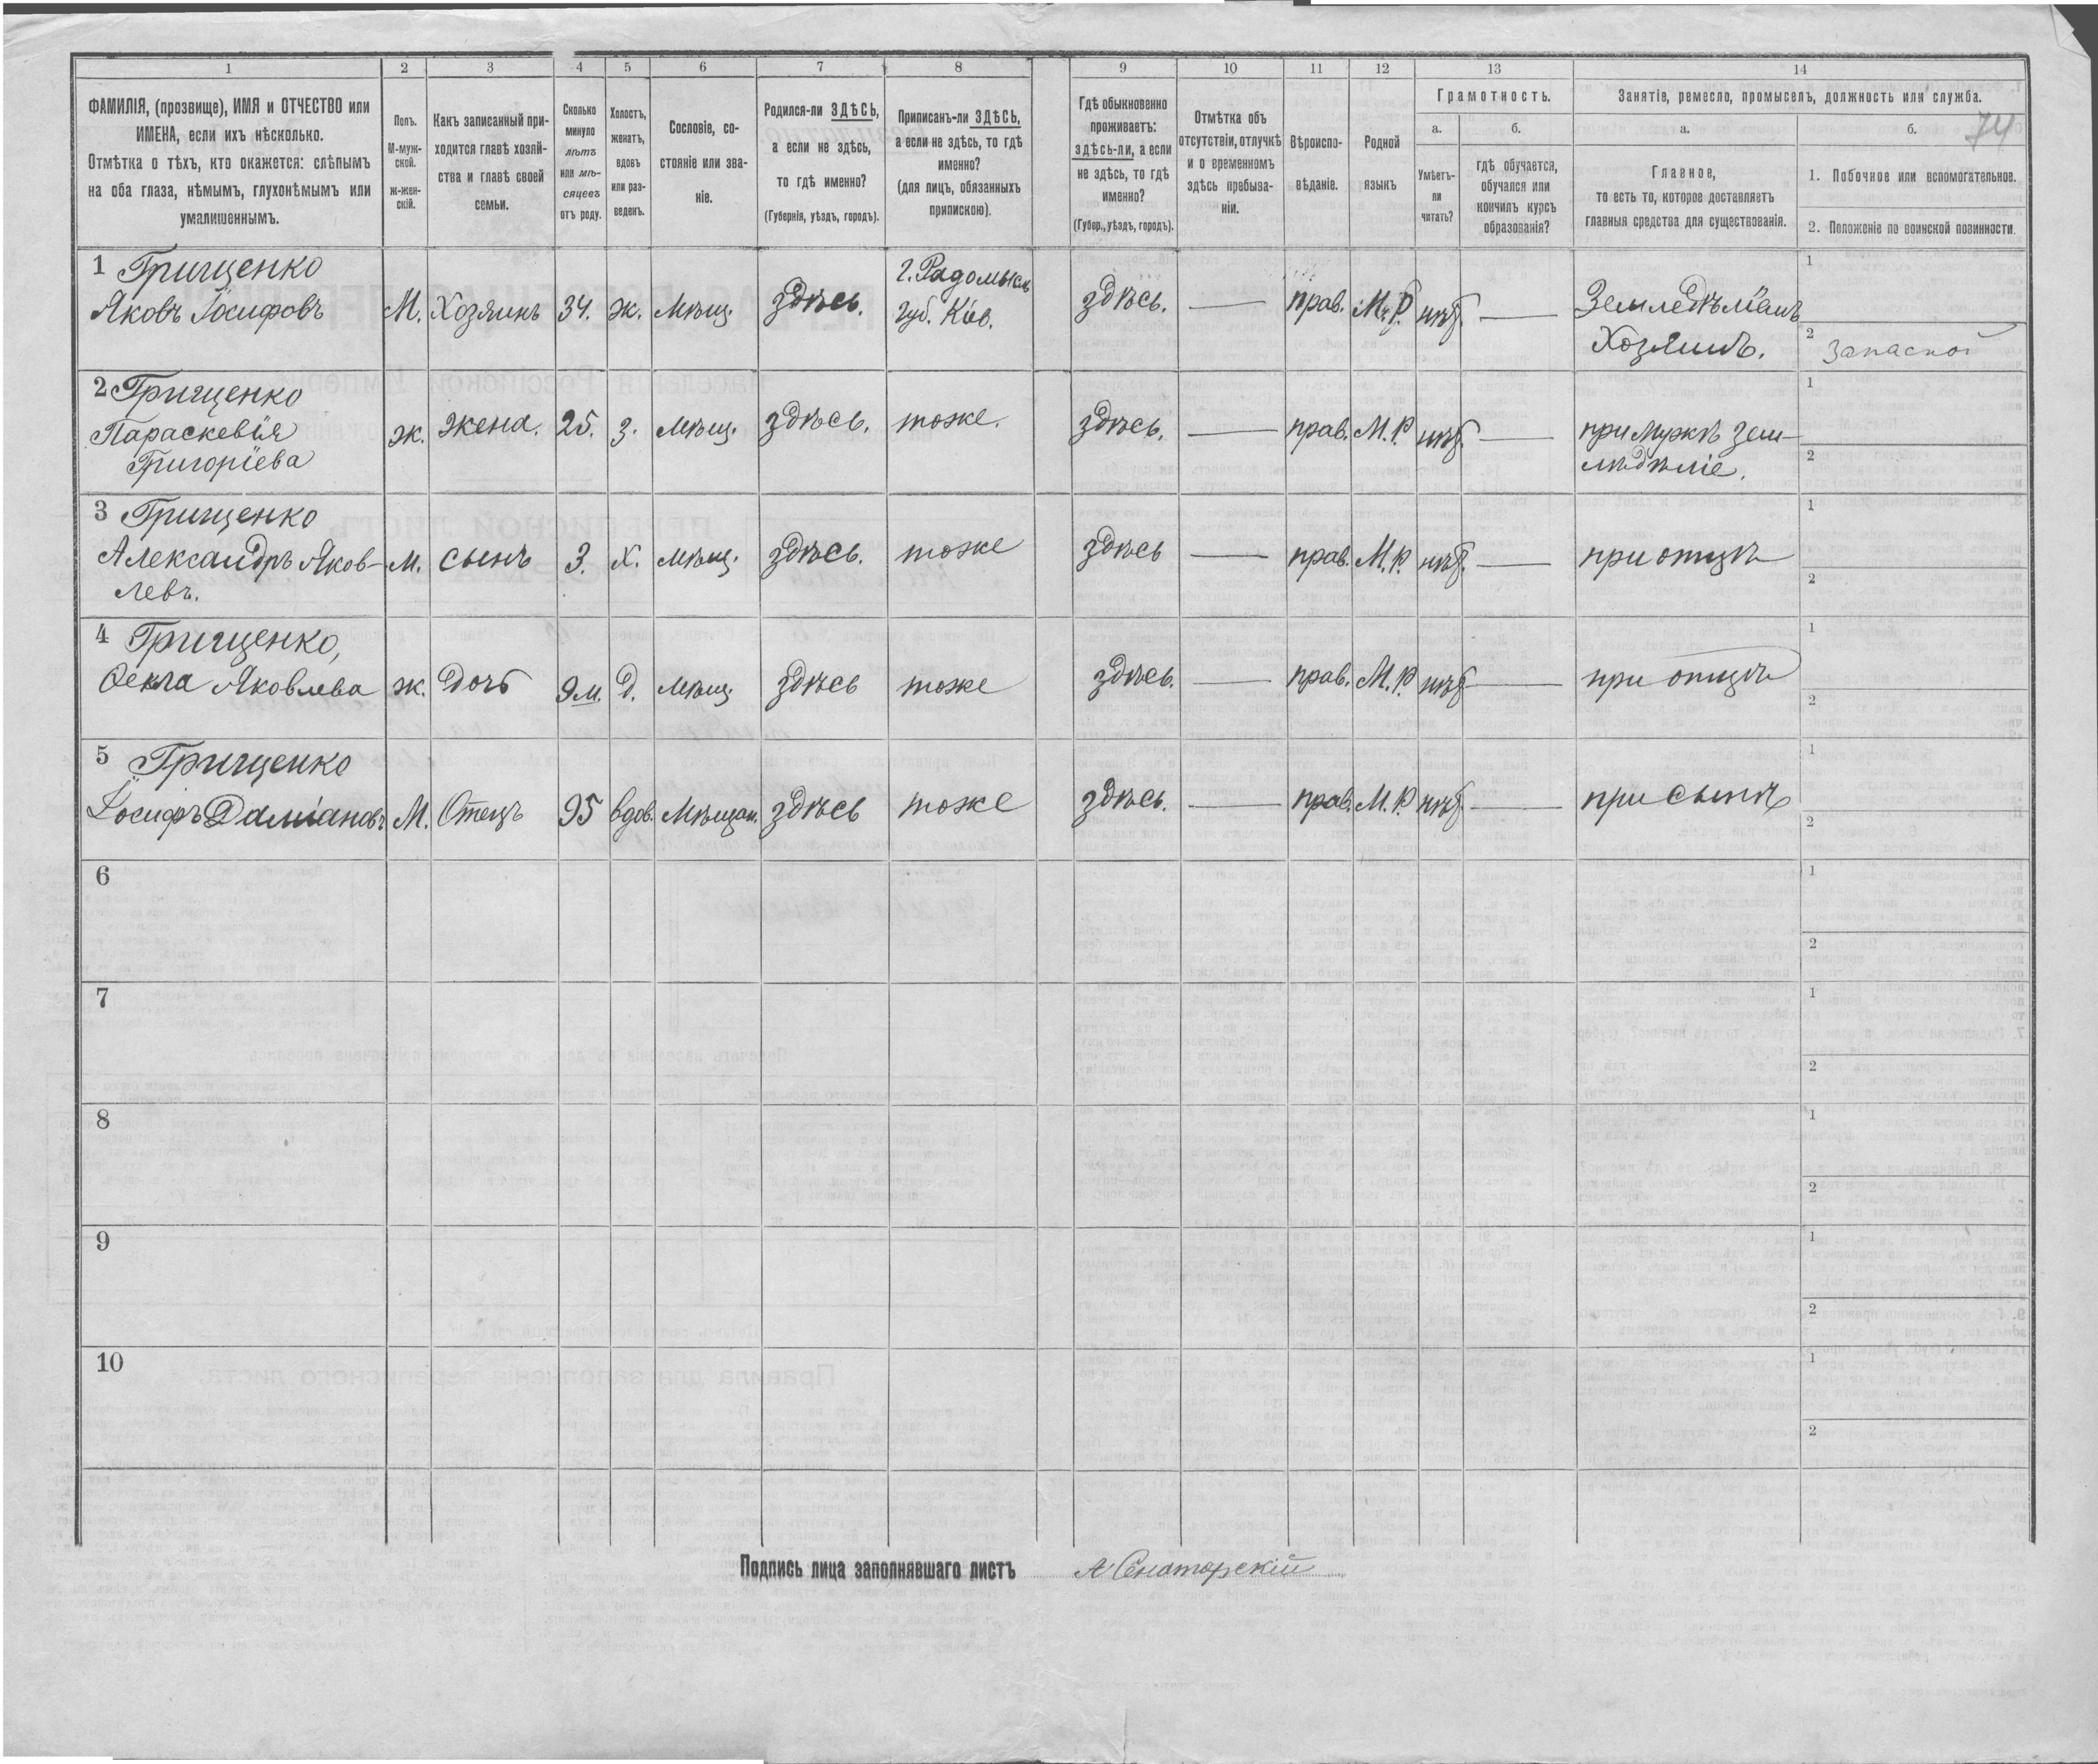 74
1 2 3 4 5 6 7 8 9 10 11 12 13 14
ФАМИЛІЯ, (прозвище), ИМЯ и ОТЧЕСТВО или
ИМЕНА, если ихъ нѣсколько.
Отмѣтка о тѣхъ, кто окажется: слѣпымъ
на оба глаза, нѣмымъ, глухонѣмымъ или
умалишеннымъ.
Полъ.
М-муж-
ской.
ж-жен-
скій.
Какъ записанный при-
ходится главѣ хозяй-
ства и главѣ своей
семьи.
Сколько
минуло
лѣтъ
или мѣ-
сяцевъ
отъ роду.
Холостъ,
женатъ,
вдовъ
или раз-
веденъ.
Сословіе, со-
стояніе или зва-
ніе.
Родился-ли ЗДѢСЬ,
а если не здѣсь,
то гдѣ именно?
(Губернія, уѣздъ, городъ).
Приписанъ-ли ЗДѢСЬ,
а если не здѣсь, то гдѣ
именно?
(для лицъ, обязанныхъ
припискою).
Гдѣ обыкновенно
проживаетъ:
здѣсь-ли, а если
не здѣсь, то гдѣ
именно?
(Губер., уѣздъ, городъ).
Отмѣтка объ
отсутствіи, отлучкѣ
и о временномъ
здѣсь пребыва-
ніи.
Вѣроиспо-
вѣданіе.
Родной
языкъ
Грамотность.
а.
Умѣетъ-
ли
читать?
б.
гдѣ обучается,
обучался или
кончилъ курсъ
образованія?
Занятіе, ремесло, промыселъ, должность или служба.
а.
Главное,
то есть то, которое доставляетъ
главныя средства для существованія.
б.
1. Побочное или вспомогательное.
2. Положеніе по воинской повинности.
1 Грищенко
Яковъ Іосифовъ
М. Хозяинъ 34. ж. Мѣщ. здѣсь.
г. Радомысль
губ. Кіев.
здѣсь. — прав. М. Р. нѣт. —
Земледѣліемъ
Хозяинъ.
1
2 Запасной
2 Грищенко
Параскевія
Григоріева
ж. жена. 25. З. Мѣщ. здѣсь. тоже. здѣсь. — прав. М. Р нѣт. —
при Мужѣ зем-
лѣдѣліе.
1
2
3 Грищенко
Александръ Яков-
левъ.
М. сынъ 3. Х. мѣщ. здѣсь. тоже здѣсь — прав. М. Р. нѣт. — при отцѣ
1
2
4 Грищенко,
Ѳекла Яковлева ж. дочь 9м. Д. мѣщ. здѣсь тоже здѣсь. — прав. М. Р нѣт — при отцѣ
1
2
5 Грищенко
Іосифъ Даміановъ М. Отецъ 95 вдов. Мѣщан. здѣсь тоже здѣсь. — прав. М. Р нѣт. — при сынѣ
1
2
6
1
2
7
1
2
8
1
2
9
1
2
10
1
2
Подпись лица заполнявшаго листъ А Сенаторскій